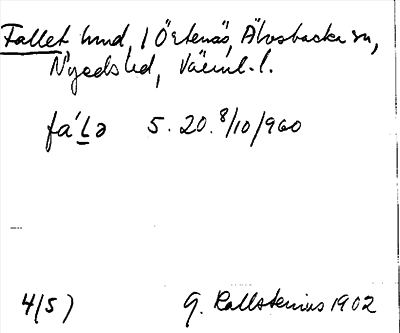 Fallet, hmd, i Örtenäs, Älvsbacka sn,
Nyeds hd, Värml. l.
fa´ḻə 5. 20. 8/10/960
4(5)
G. Kallstenius 1902